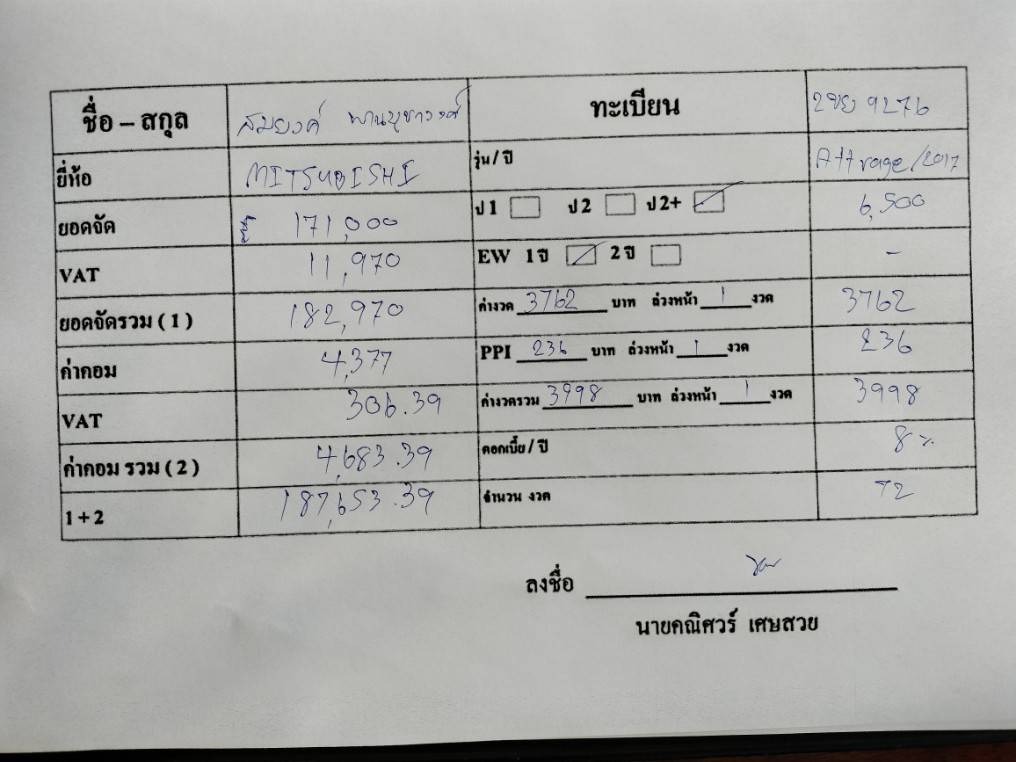 ชื่อ – สกุล สมยงค์ ทะเบียน 2ขย 9276
ยี่ห้อ MITSUBISHI รุ่น / ปี Attrage/2017
ยอดจัด 171,000 ป1 ป2 ป2+ 6,500
VAT 11,970 EW 1 ปี 2 ปี -
ยอดจัดรวม ( 1 ) 182,970 ค่างวด 3762 บาท ล่วงหน้า 1 งวด 3762
ค่าคอม 4,377 PPI 236 บาท ล่วงหน้า 1 งวด 236
VAT 306.39 ค่างวดรวม 3998 บาท ล่วงหน้า 1 งวด 3998
ค่าคอม รวม ( 2 ) 4,683.39 ดอกเบี้ย / ปี 8%
1 + 2 187,653.39 จำนวน งวด 72
ลงชื่อ
นายคณิศวร์ เศษสวย